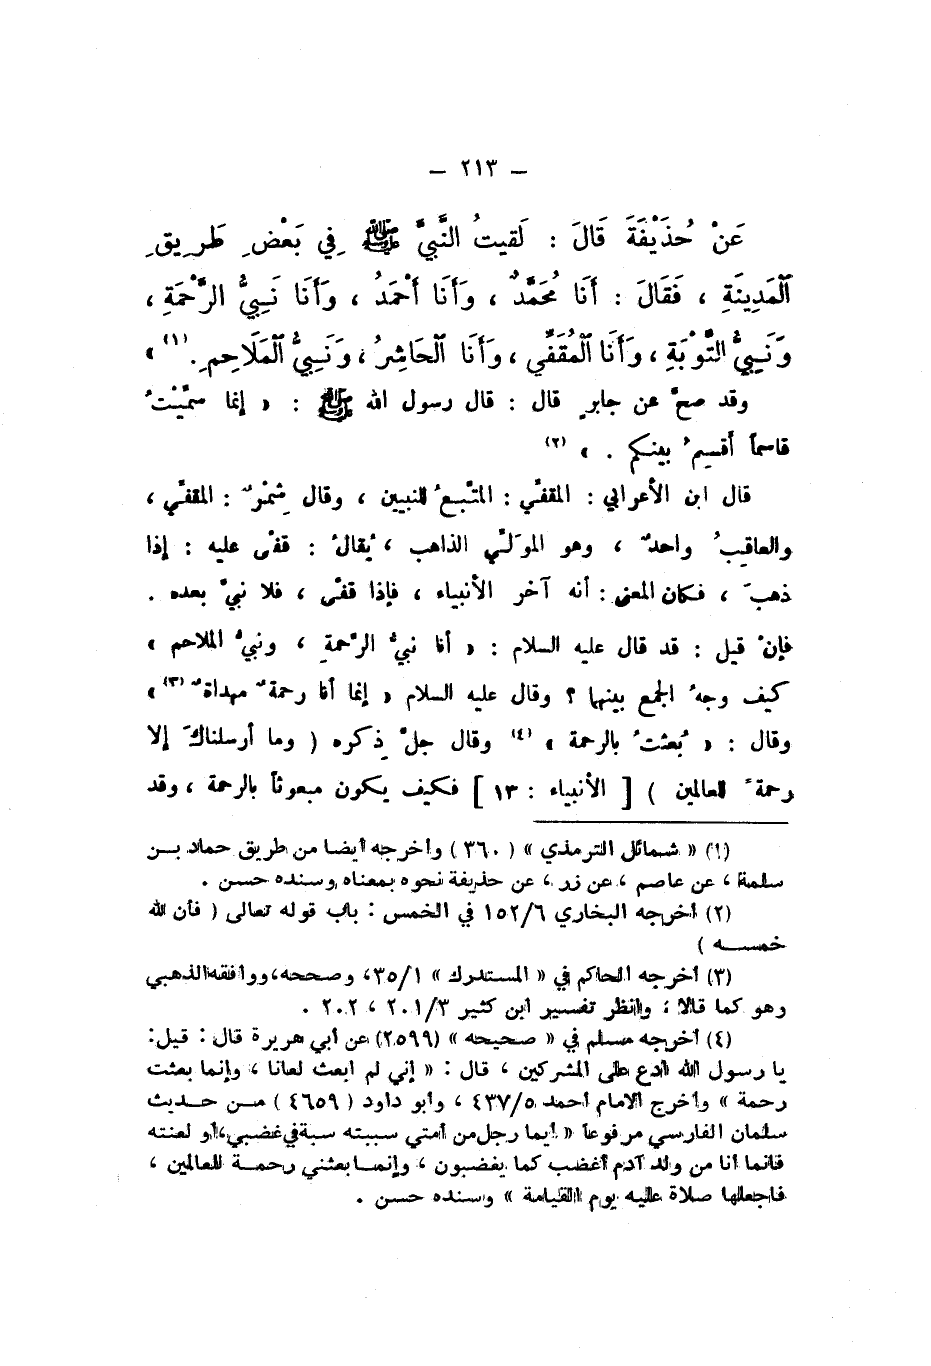 – ٢١٣ –
عَنْ حُذَيْفَةَ قَالَ : لَقيتُ النَّبيَّ ﷺ فِي بَعْضِ طَرِيقِ
ٱلمَدِينَةِ ، فَقَالَ : أَنَا مُحَمَّدٌ ، وَأَنَا أَحْمَدُ ، وَأَنَا نَبِيُّ الرَّحْمَةِ ،
وَنَبِيُّ التَّوْبَةِ ، وَأَنَا ٱلمُقَفِّي ، وَأَنَا ٱلحَاشِرُ ، وَنَبِيُّ ٱلمَلَاحِمِ . (١) »
وقد صحَّ عن جابرٍ قال : قال رسول الله ﷺ : « إنما سمِّيْتُ
قاسماً أقسِمُ بينكم . » (٢)
قال ابن الأعرابي : المقفِّي : المتَّبعُ للنبيين ، وقال شِمْرٌ : المقفِّي ،
والعاقِبُ واحدٌ ، وهو المولِّي الذاهب ، يُقالُ : قفَّى عليه : إذا
ذهبَ ، فكان المعنى : أنه آخر الأنبياء ، فإذا قفَّى ، فلا نبيَّ بعده .
فإنْ قيل : قد قال عليه السلام : « أنا نبيُّ الرَّحمةِ ، ونبيُّ الملاحم »
كيف وجهُ الجمع بينها ؟ وقال عليه السلام « إنما أنا رحمةٌ مهداةٌ (٣) »
وقال : « بُعثتُ بالرحمة » (٤) وقال جلَّ ذِكره ( وما أرسلناكَ إلا
رحمةً للعالمين ) [ الأنبياء : ١٣ ] فكيف يكون مبعوثاً بالرحمة ، وقد
(١) « شمائل الترمذي » ( ٣٦٠ ) وأخرجه أيضا من طريق حماد بــن
سلمة ، عن عاصم ، عن زر ، عن حذيفة نحوه بمعناه وسنده حسن .
(٢) أخرجه البخاري ١٥٢/٦ في الخمس : باب قوله تعالى ( فأن لله
خمســه )
(٣) أخرجه الحاكم في « المستدرك » ٣٥/١، وصححه، ووافقه الذهبي
وهو كما قالا ، وانظر تفسير ابن كثير ٢٠١/٣ ، ٢٠٢ .
(٤) أخرجه مسلم في « صحيحه » (٢٥٩٩) عن أبي هريرة قال : قيل:
يا رسول الله ادع على المشركين ، قال : « إني لم ابعث لعانا ، وإنما بعثت
رحمة » وأخرج الامام أحمد ٤٣٧/٥ ، وأبو داود ( ٤٦٥٩ ) مــن حــديث
سلمان الفارسي مرفوعاً « أيما رجل من أمتي سببته سبة في غضبي، أو لعنته
فانما أنا من ولد آدم أغضب كما يغضبون ، وإنمــا بعثني رحمــة للعالمين ،
فاجعلها صلاة عليه يوم القيامة » وسنده حسن .